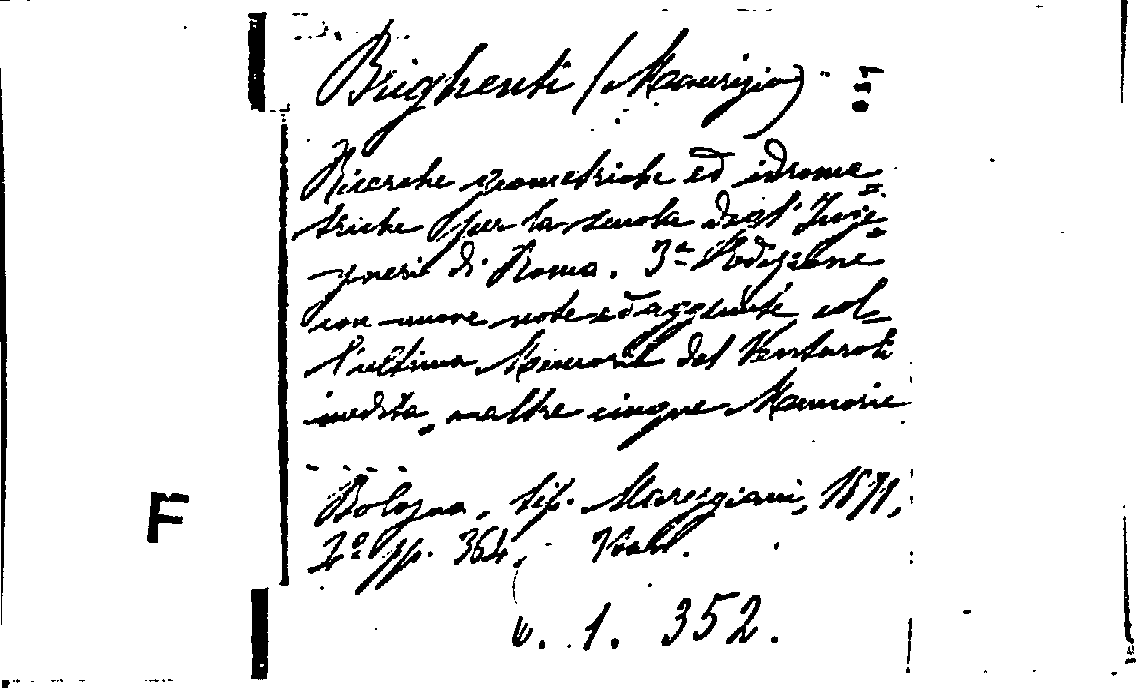 Brighenti (Maurizio)
Ricerche geometriche ed idrome=
triche per la scuola degl' Inge=
gneri di Roma. 3ª Edizione
con nuove note ed aggiunte, col=
l'ultima Memoria del Venturoli
inedita, e altre cinque Memorie
Bologna, tip. Mareggiani, 1871,
pp. 364,
F
1. 352.